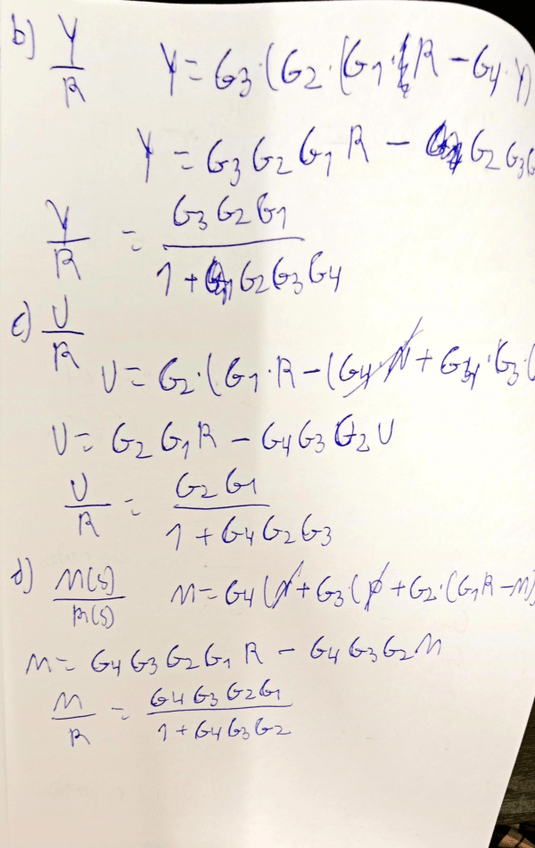 b) Y/R Y = G3·(G2·(G1·R - G4·Y)
Y = G3 G2 G1 R - G2 G3 G
Y/R = G3 G2 G1 / 1 + G2 G3 G4
c) U/R U = G2·(G1·R - (G4 N + G4·G3·(
U = G2 G1 R - G4 G3 G2 U
U/R = G2 G1 / 1 + G4 G2 G3
d) M(s)/R(s) M = G4 (N + G3·(D + G2·(G1R - M)
M = G4 G3 G2 G1 R - G4 G3 G2 M
M/R = G4 G3 G2 G1 / 1 + G4 G3 G2